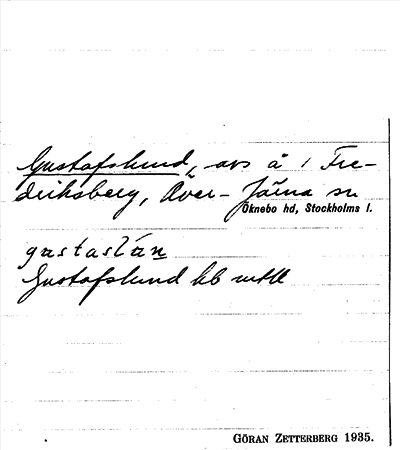 Gustafslund, avs å 1 Fre-
driksberg, Över-Järna sn
Öknebo hd, Stockholms l.
gustaslún
Gustafslund kb mtll
GÖRAN ZETTERBERG 1935.